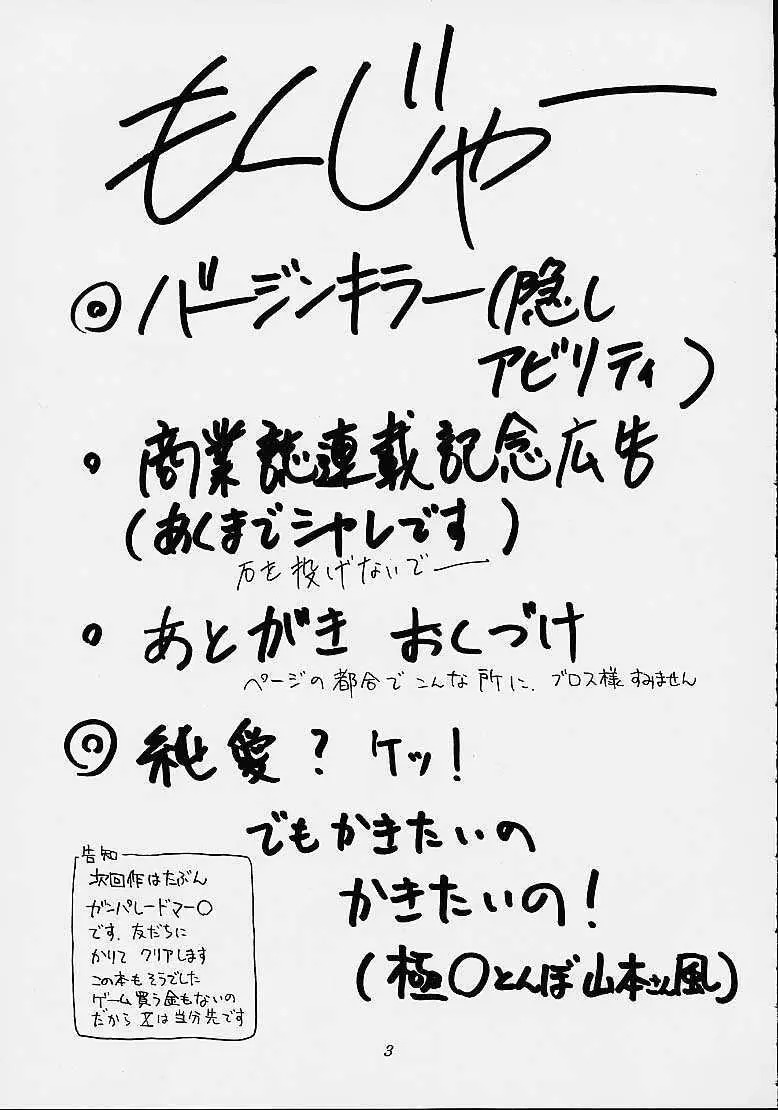 もくじゃー
◎バージンキラー(隠し
アビリティ)
・商業誌連載記念広告
(あくまでシャレです)
石を投げないでー
・あとがき おくづけ
ページの都合でこんな所に、ブロス様すみません
◎純愛? ケッ!
でもかきたいの
かきたいの!
(極〇とんぼ山本さん風)
告知
次回作はたぶん
ガンパレードマー〇
です、友だちに
かりて クリアします
この本もそうでした
ゲーム買う金もないの
だから Xは当分先です
3